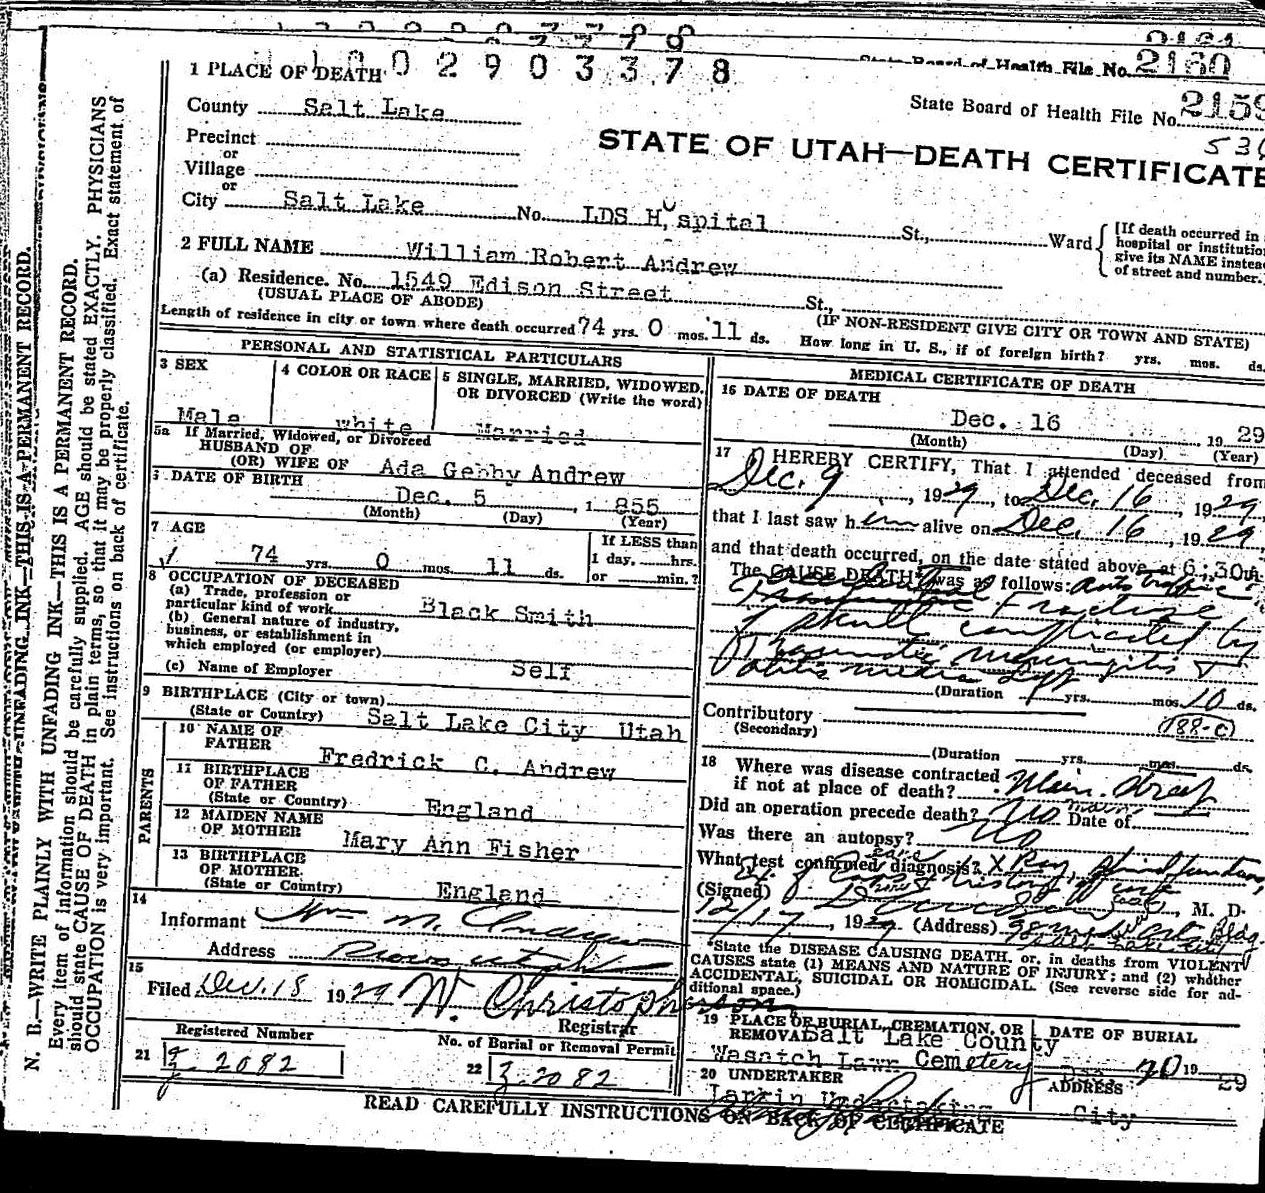 2161
State Board of Health File No. 2160
1002903378
1 PLACE OF DEATH
State Board of Health File No. 2159
County Salt Lake
STATE OF UTAH—DEATH CERTIFICATE
Precinct
or
Village
or
City Salt Lake No. LDS Hospital St., Ward
[If death occurred in
hospital or institution
give its NAME instead
of street and number.
2 FULL NAME William Robert Andrew
(a) Residence. No. 1549 Edison Street St.,
(USUAL PLACE OF ABODE)
(IF NON-RESIDENT GIVE CITY OR TOWN AND STATE)
Length of residence in city or town where death occurred 74 yrs. 0 mos. 11 ds. How long in U. S., if of foreign birth? yrs. mos. ds.
PERSONAL AND STATISTICAL PARTICULARS
3 SEX
Male
4 COLOR OR RACE
white
5 SINGLE, MARRIED, WIDOWED,
OR DIVORCED (Write the word)
Married
5a If Married, Widowed, or Divorced
HUSBAND OF
(OR) WIFE OF Ada Gebby Andrew
6 DATE OF BIRTH
Dec. 5, 1855
(Month) (Day) (Year)
7 AGE
74 yrs. 0 mos. 11 ds.
If LESS than
1 day, hrs.
or min.?
8 OCCUPATION OF DECEASED
(a) Trade, profession or
particular kind of work Black Smith
(b) General nature of industry,
business, or establishment in
which employed (or employer)
(c) Name of Employer Self
9 BIRTHPLACE (City or town)
(State or Country) Salt Lake City Utah
PARENTS
10 NAME OF
FATHER Fredrick C. Andrew
11 BIRTHPLACE
OF FATHER
(State or Country) England
12 MAIDEN NAME
OF MOTHER Mary Ann Fisher
13 BIRTHPLACE
OF MOTHER
(State or Country) England
14
Informant Wm M. Andrew
Address Provo Utah
15
Filed Dec. 18 1929 W. Christopherson
Registrar
Registered Number
21 2082
No. of Burial or Removal Permit
22 2082
MEDICAL CERTIFICATE OF DEATH
16 DATE OF DEATH
Dec. 16 1929
(Month) (Day) (Year)
17 I HEREBY CERTIFY, That I attended deceased from
Dec. 9, 1929, to Dec. 16 1929,
that I last saw him alive on Dec. 16, 1929,
and that death occurred, on the date stated above, at 6:30
The CAUSE DEATH* was as follows: auto traffic
Fracture
of skull complicated by
Traumatic meningitis &
otitis media
(Duration yrs. mos. 10 ds.
Contributory
(Secondary)
(188-c)
(Duration yrs. mos. ds.
18 Where was disease contracted
if not at place of death? Main Street
Did an operation precede death? No Date of
Was there an autopsy? No
What test confirmed diagnosis? X Ray, spinal puncture,
(Signed) M. D.
12/17, 1929 (Address) Bldg.
Salt Lake City
*State the DISEASE CAUSING DEATH, or, in deaths from VIOLENT
CAUSES state (1) MEANS AND NATURE OF INJURY; and (2) whether
ACCIDENTAL, SUICIDAL OR HOMICIDAL. (See reverse side for ad-
ditional space.)
19 PLACE OF BURIAL, CREMATION, OR
REMOVAL Salt Lake County
Wasatch Lawn Cemetery
DATE OF BURIAL
Dec 20 1929
20 UNDERTAKER
Larkin Undertaking
ADDRESS
City
READ CAREFULLY INSTRUCTIONS ON BACK OF CERTIFICATE
N. B.—WRITE PLAINLY WITH UNFADING INK—THIS IS A PERMANENT RECORD.
Every item of information should be carefully supplied. AGE should be stated EXACTLY. PHYSICIANS
should state CAUSE OF DEATH in plain terms, so that it may be properly classified. Exact statement of
OCCUPATION is very important. See instructions on back of certificate.